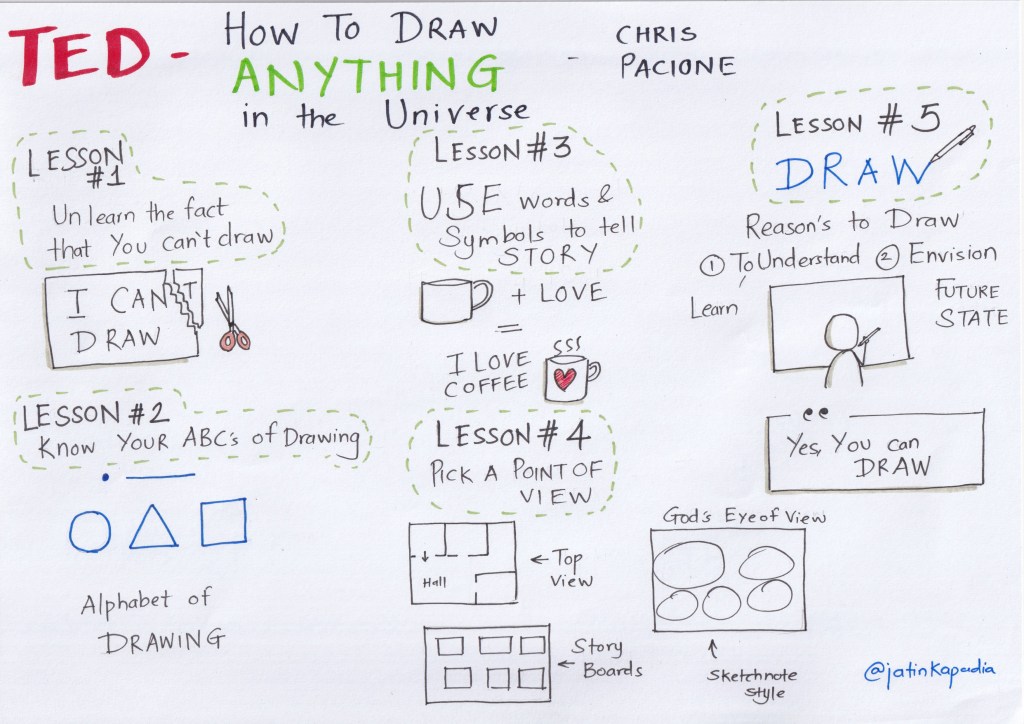 TED - HOW TO DRAW
ANYTHING
in the Universe
- CHRIS
PACIONE
LESSON
#1
Un learn the fact
that You can't draw
I CAN'T
DRAW
LESSON #2
Know YOUR ABC's of Drawing
Alphabet of
DRAWING
LESSON #3
USE words &
Symbols to tell
STORY
+ LOVE
=
I LOVE
COFFEE
LESSON #4
PICK A POINT OF
VIEW
Hall
← TOP
VIEW
← Story
Boards
God's Eye of View
↑
Sketchnote
Style
LESSON #5
DRAW
Reason's to Draw
① To Understand ② Envision
Learn
FUTURE
STATE
Yes, You can
DRAW
@jatinkapadia